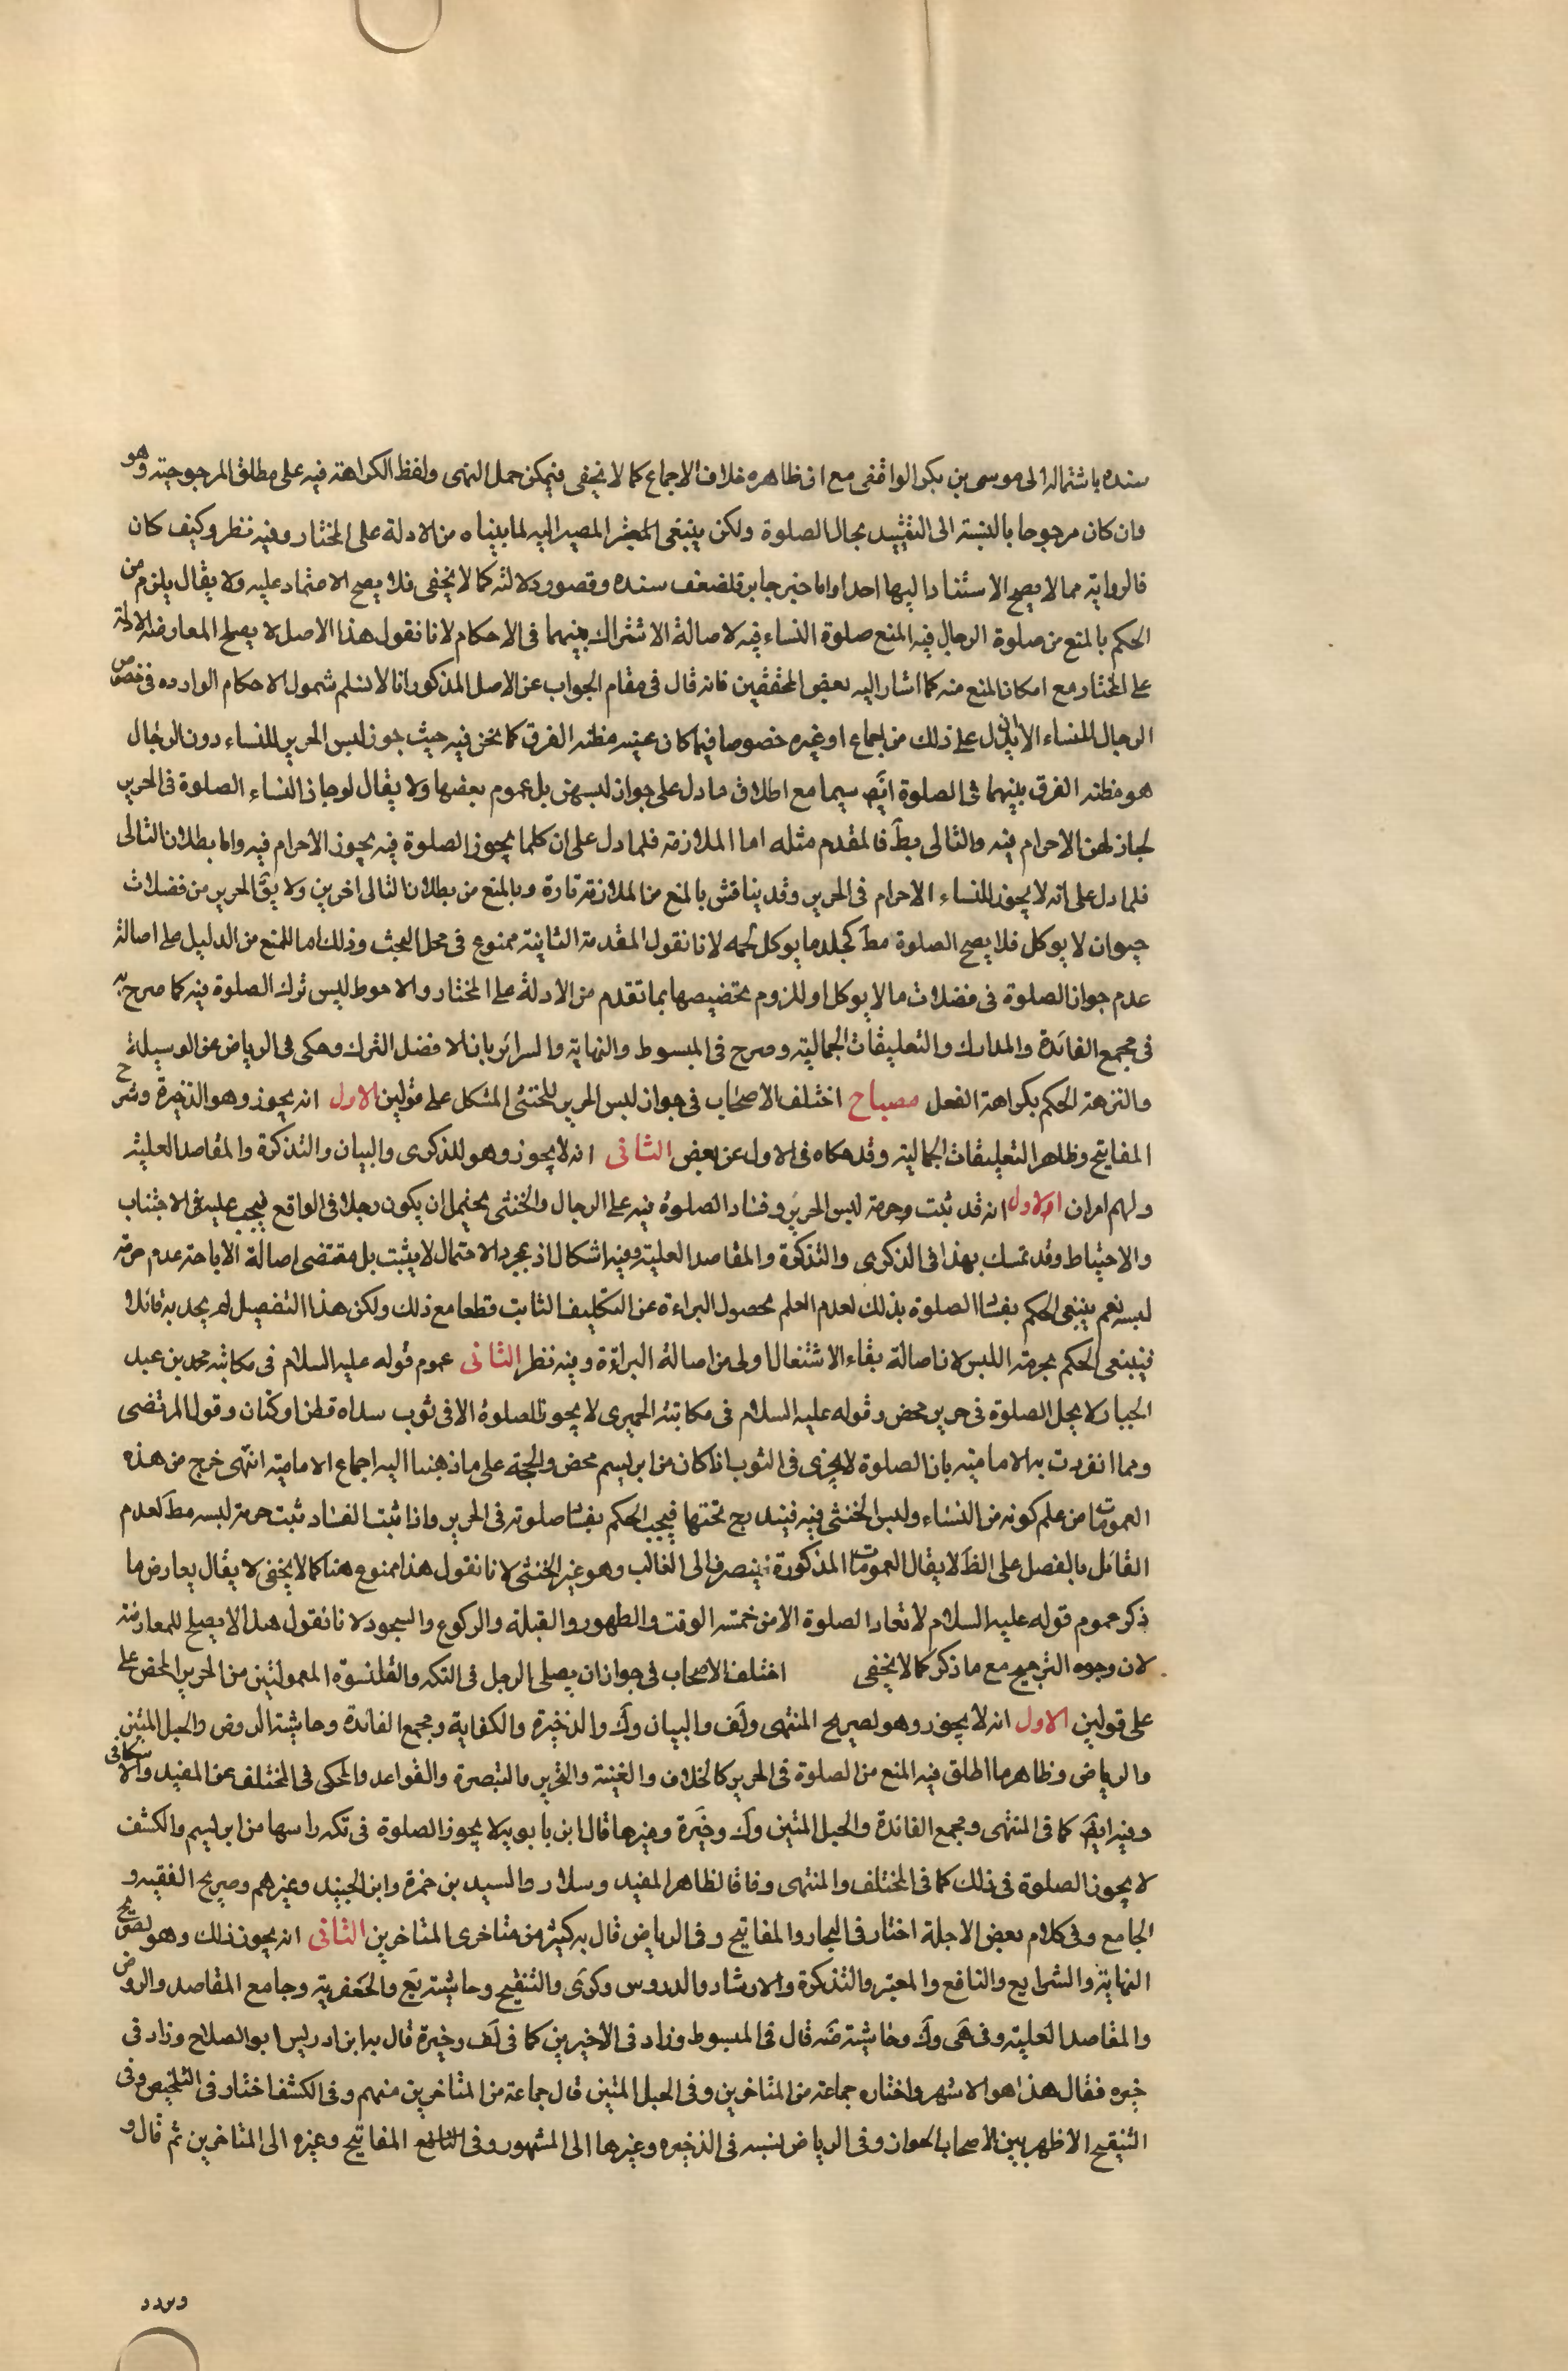 سنده باشتماله الى موسى بن بكر الواقفى مع ان ظاهره خلاف الاجماع كما لا يخفى فيمكن حمل النهى ولفظ الكراهة فيه على مطلق المرجوحية وهو
وان كان مرجوحا بالنسبة الى التقييد بحال الصلوة ولكن ينبغى المصير اليه لما بيناه من الادلة على المختار وفيه نظر وكيف كان
فالرواية مما لا يصح الاستناد اليها احدا واما خبر جابر فلضعف سنده وقصور دلالته كما لا يخفى فلا يصح الاعتماد عليه ولا يقال يلزم من
الحكم بالمنع من صلوة الرجال فيه المنع صلوة النساء فيه لاصالة الاشتراك بينهما فى الاحكام لانا نقول هذا الاصل لا يصلح لمعارضة الادلة
على المختار مع امكان المنع منه كما اشار اليه بعض المحققين فانه قال فى مقام الجواب عن الاصل المذكور انا لا نسلم شمول الاحكام الوارده فى خصوص
الرجال للنساء الا ان يدل على ذلك من اجماع او غيره خصوصا فيما كان عينه مظنه الفرق كما نحن فيه حيث جوز لبس الحرير للنساء دون الرجال
هو مظنه الفرق بينهما فى الصلوة ايضَ سيما مع اطلاق ما دل على جواز لبسهن بل عموم بعضها ولا يقال لو جاز النساء الصلوة فى الحرير
لجاز لهن الاحرام فيه والتالى بطَ فالمقدم مثله اما الملازمة فلما دل على ان كلما يجوز الصلوة فيه يجوز الاحرام فيه واما بطلان التالى
فلما دل على انه لا يجوز للنساء الاحرام فى الحرير وقد يناقش بالمنع من الملازمة تارة وبالمنع من بطلان التالى اخرين ولا يقَ الحرير من فضلات
حيوان لا يوكل فلا يصح الصلوة مطَ كجلد ما يوكل لحمه لانا نقول المقدمة الثانية ممنوع فى محل البحث وذلك اما للمنع من الدليل على اصالة
عدم جواز الصلوة فى فضلات ما لا يوكل او للزوم تخصيصها بما تقدم من الادلة على المختار والاحوط لبس ترك الصلوة فيه كما صرح به
فى مجمع الفائدة والمدارك والتعليقات الجمالية وصرح فى المبسوط والنهاية والسرائر بان الافضل الترك وحكى فى الرياض عن الوسيلة
والنزهة الحكم بكراهة الفعل مصباح اختلف الاصحاب فى جواز لبس الحرير للخنثى المشكل على قولين الاول انه يجوز وهو الذخيرة وشرح
المفاتيح وظاهر التعليقات الجمالية وقد حكاه فى الاول عن بعض الثانى انه لا يجوز وهو للذكرى والبيان والتذكرة والمقاصد العلية
ولهم امران الاول انه قد ثبت وحرمة لبس الحرير وفساد الصلوة فيه على الرجال والخنثى يحتمل ان يكون رجلا فى الواقع فيجب عليه فى الاجتناب
والاحتياط وقد تمسك بهذا فى الذكرى والتذكرة والمقاصد العلية وفيه اشكال اذ بمجرد الاحتمال لا يثبت بل مقتضى اصالة الاباحة عدم حرمة
لبسه نعم ينبغى الحكم بفساد الصلوة بذلك لعدم العلم بحصول البراءة عن التكليف الثابت قطعا مع ذلك ولكن هذا التفصيل لم يجد به قائلا
فينبغى الحكم بحرمة اللبس لان اصالة بقاء الاشتغال اولى من اصالة البراءة وفيه نظر الثانى عموم قوله عليه السلام فى مكاتبه محمد بن عبد
الجبار لا يحل الصلوة فى حرير محض وقوله عليه السلام فى مكاتبته الحميرى لا يجوز الصلوة الا فى ثوب سداه قطن او كتان وقول المرتضى
ومما انفردت به الامامية بان الصلوة لا يجزى فى الثوب اذا كان من ابريسم محض والحجة على ما ذهبنا اليه اجماع الامامية انتهى خرج من هذه
العمومات من علم كونه من النساء وليس الخنثى فيه فيندرج تحتها فيجب الحكم بفساد صلوته فى الحرير واذا ثبت الفساد ثبت حرمة لبسه مطَ لعدم
القائل بالفصل على الظَ لا يقال العمومات المذكورة ينصرف الى الغالب وهو غير الخنثى لانا نقول هذا ممنوع هنا كما لا يخفى لا يقال يعارض ما
ذكر عموم قوله عليه السلام لا تعاد الصلوة الا من خمسه الوقت والطهور والقبلة والركوع والسجود لانا نقول هذا لا يصلح للمعارضة
لان وجوه الترجيح مع ما ذكر كما لا يخفى اختلف الاصحاب فى جواز ان يصلى الرجل فى التكه والقلنسوة المعمولتين من الحرير المحض على
على قولين الاول انه لا يجوز وهو لصريح المنتهى ولَف والبيان وكَ والذخيرة والكفاية ومجمع الفائدة وحاشية الروض والحبل المتين
والرياض وظاهر ما اطلق فيه المنع من الصلوة فى الحرير كالخلاف والغنية والتحرير والتبصرة والقواعد والمحكى فى المختلف عن المفيد والاسكافى
وفيه ايضَ كما فى المنتهى ومجمع الفائدة والحبل المتين وكَ وخيَرة وغيرها قال ابن بابويه لا يجوز الصلوة فى تكه راسها من ابريسم والكشف
لا يجوز الصلوة فى ذلك كما فى المختلف والمنتهى وفاقا لظاهر المفيد وسلار والسيد بن حمزة وابن الجنيد وغيرهم وصريح الفقيه و
الجامع وفى كلام بعض الاجلة اختار فى البحار والمفاتيح وفى الرياض قال به كثير من متاخرى المتاخرين الثانى انه يجوز ذلك وهو لصريح
النهاية والشرايع والنافع والمعتبر والتذكرة والارشاد والدروس وكرَى والتنقيح وحاشية يَع والجَعفرية وجامع المقاصد والروض
والمقاصد العلية وفى هَى وكَ وحاشية ضَه قال فى المبسوط وزاد فى الاخيرين كما فى لَف وخيرة قال به ابن ادريس ابو الصلاح وزاد فى
خيره فقال هذا هو الاشهر واختاره جماعة من المتاخرين وفى الحبل المتين قال جماعة من المتاخرين منهم وفى الكشف اختار فى التلخيص وفى
التنقيح الاظهر بين الاصحاب الجواز وفى الرياض لنسبه فى الذخيره وغيرها الى المشهور وفى المفاتيح وغيره الى المتاخرين ثم قال و